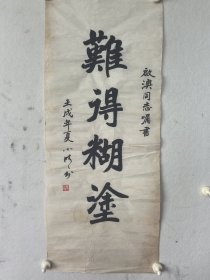 啟漢同志囑書
難得糊塗
壬戌年夏